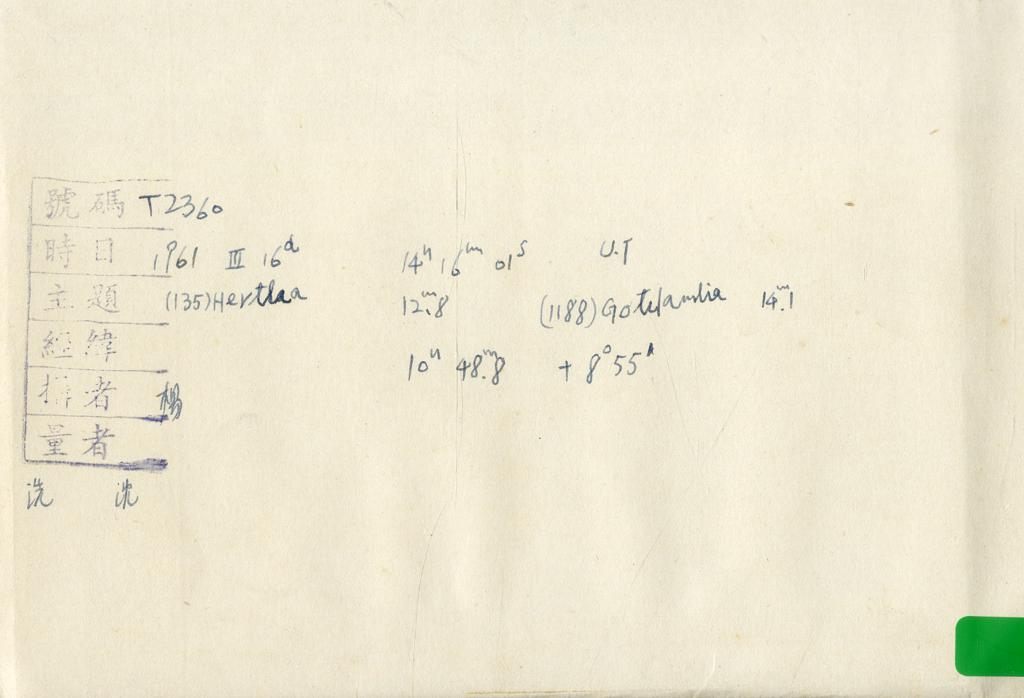 號碼 T2360
時日 1961 III 16ᵈ 14ʰ 16ᵐ 01ˢ U.T
主題 (135) Hertha 12ᵐ.8 (1188) Gotlandia 14ᵐ.1
經緯 10ʰ 48ᵐ.8 + 8°55'
攝者 楊
量者
洗 沈